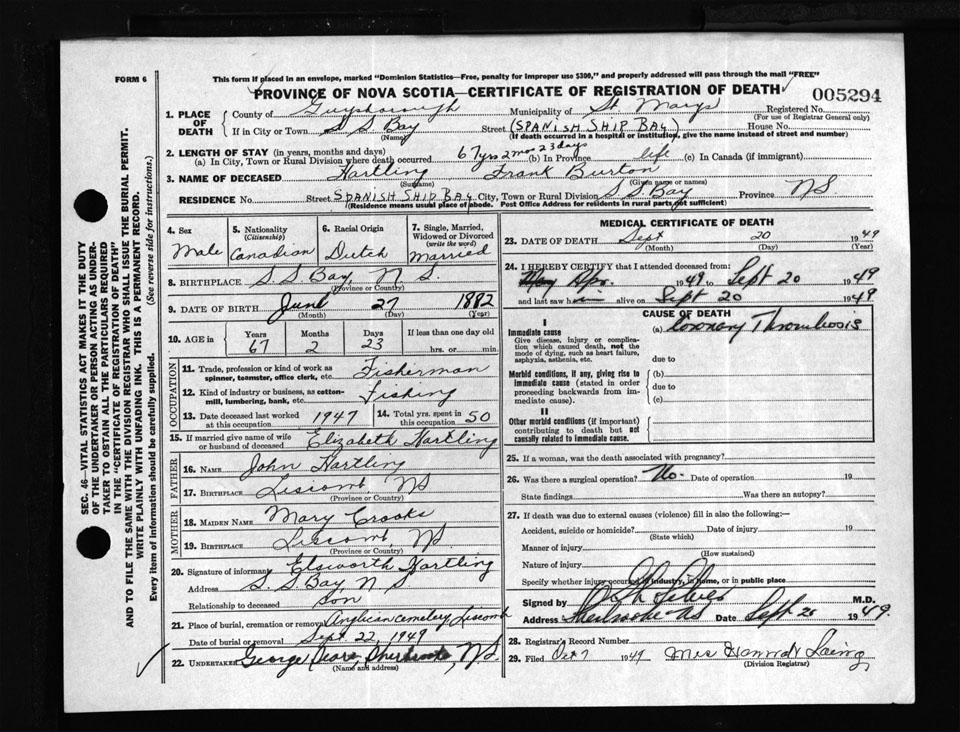 FORM 6
This form if placed in an envelope, marked "Dominion Statistics—Free, penalty for improper use $300," and properly addressed will pass through the mail "FREE"
PROVINCE OF NOVA SCOTIA—CERTIFICATE OF REGISTRATION OF DEATH
005294
1. PLACE OF DEATH
County of Guysborough Municipality of St Marys Registered No.
(For use of Registrar General only)
If in City or Town S S Bay Street (SPANISH SHIP BAY) House No.
(Name) (If death occurred in a hospital or institution, give the name instead of street and number)
2. LENGTH OF STAY (in years, months and days)
(a) In City, Town or Rural Division where death occurred 67 yrs 2 mos 23 days (b) In Province life (c) In Canada (if immigrant)
3. NAME OF DECEASED Hartling Frank Burton
(Surname) (Given name or names)
RESIDENCE No. Street SPANISH SHIP BAY City, Town or Rural Division S S Bay Province N S
(Residence means usual place of abode. Post Office Address for residents in rural parts not sufficient)
4. Sex Male
5. Nationality (Citizenship) Canadian
6. Racial Origin Dutch
7. Single, Married, Widowed or Divorced (write the word) Married
8. BIRTHPLACE S. S Bay, N S.
(Province or Country)
9. DATE OF BIRTH June 27 1882
(Month) (Day) (Year)
10. AGE in Years 67 Months 2 Days 23 If less than one day old hrs. or min.
OCCUPATION
11. Trade, profession or kind of work as spinner, teamster, office clerk, etc. Fisherman
12. Kind of industry or business, as cotton-mill, lumbering, bank, etc. Fishing
13. Date deceased last worked at this occupation 1947
14. Total yrs. spent in this occupation 50
15. If married give name of wife or husband of deceased Elizabeth Hartling
FATHER
16. NAME John Hartling
17. BIRTHPLACE Liscomb, NS
(Province or Country)
MOTHER
18. MAIDEN NAME Mary Crooks
19. BIRTHPLACE Liscomb, NS.
(Province or Country)
20. Signature of informant Elsworth Hartling
Address S. S. Bay, N S
Relationship to deceased Son
21. Place of burial, cremation or removal Anglican Cemetery Liscomb
Date of burial or removal Sept 22, 1949
22. UNDERTAKER George , NS.
(Name and address)
MEDICAL CERTIFICATE OF DEATH
23. DATE OF DEATH Sept 20 1949
(Month) (Day) (Year)
24. I HEREBY CERTIFY that I attended deceased from:
Apr. 1949 to Sept 20 1949
and last saw him alive on Sept 20 1949
CAUSE OF DEATH
I
Immediate cause
Give disease, injury or complication which caused death, not the mode of dying, such as heart failure, asphyxia, asthenia, etc.
(a) Coronary Thrombosis
due to
Morbid conditions, if any, giving rise to immediate cause (stated in order proceeding backwards from immediate cause).
(b)
due to
(c)
II
Other morbid conditions (if important) contributing to death but not causally related to immediate cause.
25. If a woman, was the death associated with pregnancy?
26. Was there a surgical operation? No. Date of operation 19
State findings Was there an autopsy?
27. If death was due to external causes (violence) fill in also the following:—
Accident, suicide or homicide? Date of injury 19
(State which)
Manner of injury
(How sustained)
Nature of injury
Specify whether injury occurred in industry, in home, or in public place
Signed by Silver M.D.
Address Sherbrooke NS Date Sept 20 1949.
28. Registrar's Record Number
29. Filed Oct 7 1949 Mrs Laing
(Division Registrar)
SEC. 46—VITAL STATISTICS ACT MAKES IT THE DUTY
OF THE UNDERTAKER OR PERSON ACTING AS UNDERTAKER TO OBTAIN ALL THE PARTICULARS REQUIRED
IN THE "CERTIFICATE OF REGISTRATION OF DEATH"
AND TO FILE THE SAME WITH THE DIVISION REGISTRAR WHO SHALL ISSUE THE BURIAL PERMIT.
WRITE PLAINLY WITH UNFADING INK. THIS IS A PERMANENT RECORD.
Every item of information should be carefully supplied. (See reverse side for instructions.)